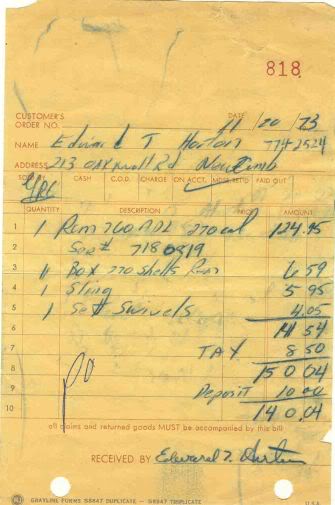 818
CUSTOMER'S
ORDER NO. DATE 11/20/73
NAME Edward T Horton 774-2524
ADDRESS 213 Rd
SOLD BY CASH C.O.D. CHARGE ON ACCT. MDSE. RET'D PAID OUT
QUANTITY DESCRIPTION PRICE AMOUNT
1 1 Rem 760 ADL 270 cal 124.95
2 Ser# 7180319
3 11 Box 270 Shells Rem 6 59
4 1 Sling 5 95
5 1 Set Swivels 4.05
6 141 54
7 TAX 8 50
8 150 04
9 Deposit 10 00
10 140.04
all claims and returned goods MUST be accompanied by this bill
RECEIVED BY Edward T. Horton
GRAYLINE FORMS 5S847 DUPLICATE - 5R847 TRIPLICATE U.S.A.